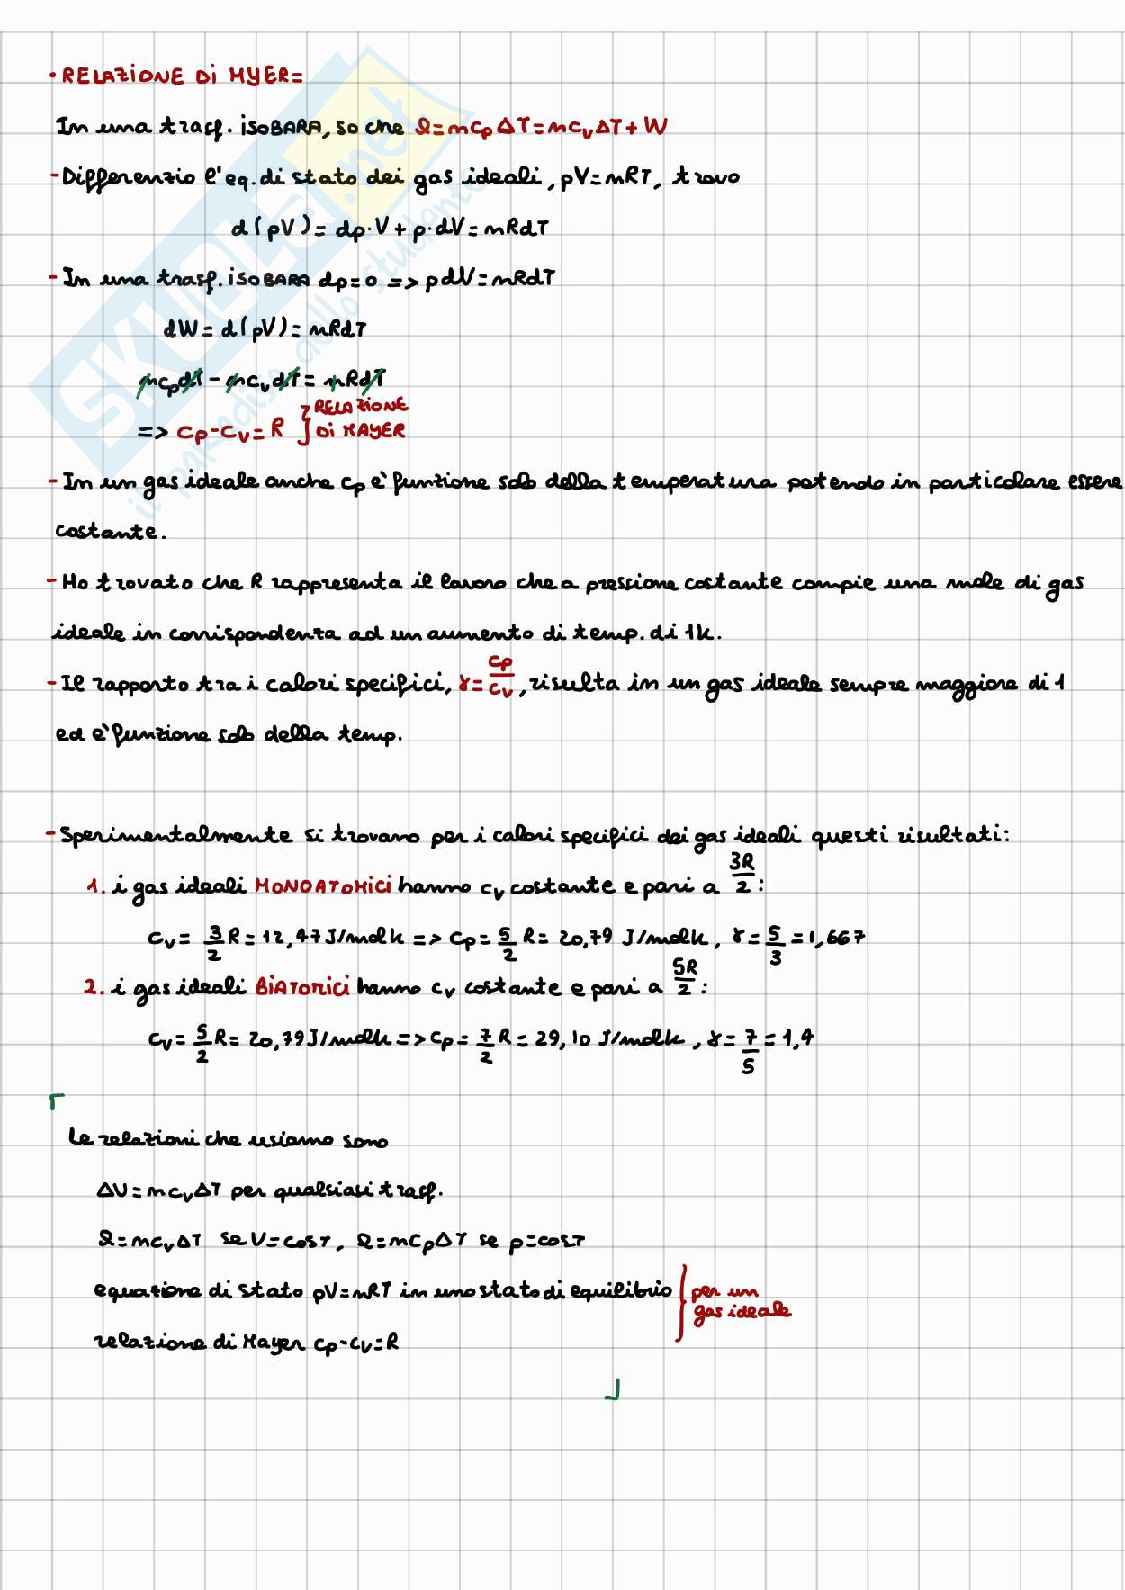 - RELAZIONE Di MYER=
In una trasf. iSOBARA, so che Q=ncpΔT=ncvΔT+W
- Differenzio l'eq. di stato dei gas ideali, pV=nRT, trovo
d(pV)= dp·V+p·dV=nRdT
- In una trasf. iSOBARA dp=0 => pdV=nRdT
dW=d(pV)=nRdT
ncpdT-ncvdT=nRdT
=> cp-cv=R } RELAZIONE
Di MAYER
- In un gas ideale anche cp è funzione solo della temperatura potendo in particolare essere
costante.
- Ho trovato che R rappresenta il lavoro che a pressione costante compie una mole di gas
ideale in corrispondenza ad un aumento di temp. di 1k.
- Il rapporto tra i calori specifici, γ=cp/cv, risulta in un gas ideale sempre maggiore di 1
ed è funzione solo della temp.
- Sperimentalmente si trovano per i calori specifici dei gas ideali questi risultati:
1. i gas ideali MONOATOMiCi hanno cv costante e pari a 3R/2:
cv= 3/2 R=12,47 J/molk => cp= 5/2 R= 20,79 J/molk, γ= 5/3 =1,667
2. i gas ideali BiATOMiCi hanno cv costante e pari a 5R/2:
cv= 5/2 R= 20,79 J/molk => cp= 7/2 R= 29,10 J/molk, γ= 7/5 =1,4
Le relazioni che usiamo sono
ΔU=ncvΔT per qualsiasi trasf.
Q=ncvΔT se V=cost, Q=ncpΔT se p=cost
equazione di stato pV=nRT in uno stato di equilibrio } per un
gas ideale
relazione di Mayer cp-cv=R
SKUOLA.net
il paradiso dello studente